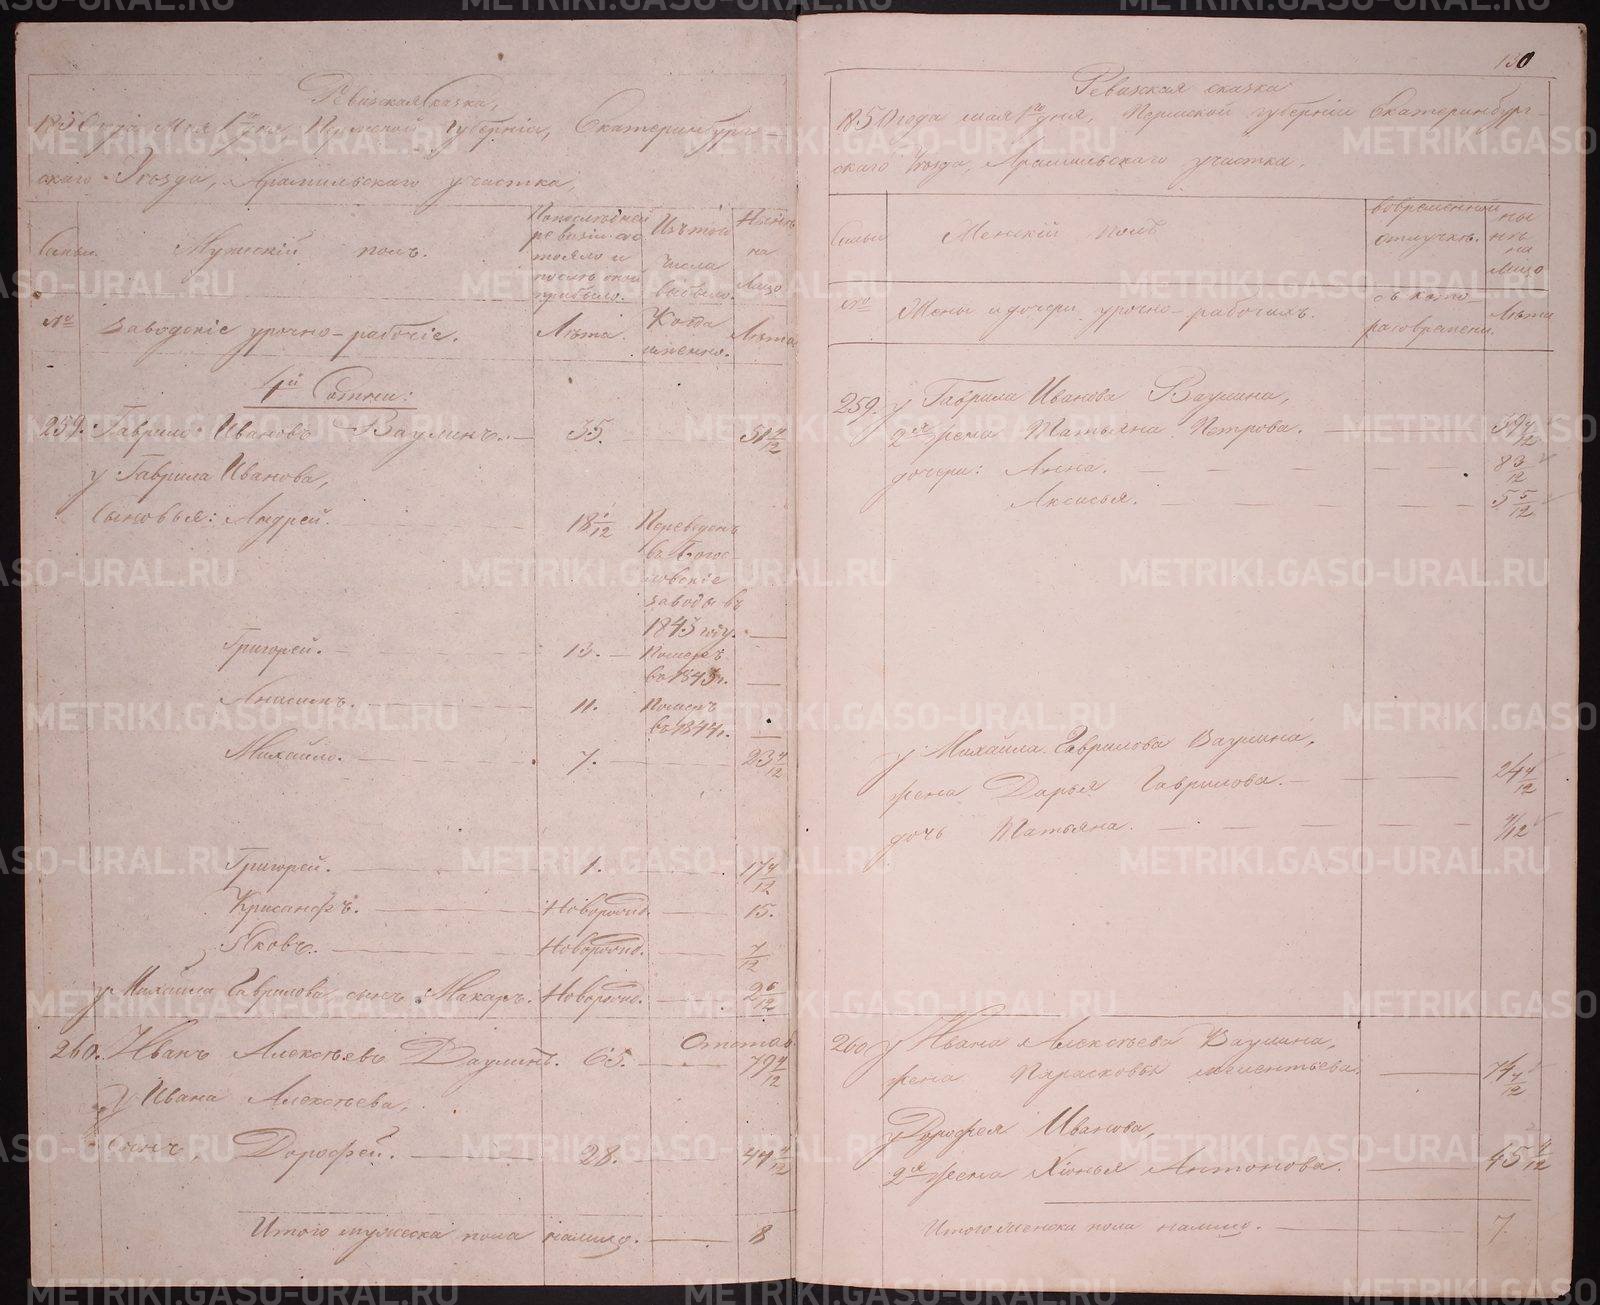 Ревизская сказка,
1850 года Мая 1го дня, Пермской Губернiи, Екатеринбург-
скаго Уѣзда, Арамильскаго участка,
Семьи. Мужескiй полъ. По послѣдней ревизiи состояло и послѣ оной прибыло. Изъ того числа выбыло. Нынѣ на лицо
№ Заводскiе урочно-рабочiе. Лѣта. Когда именно. Лѣта
1й Сотни:
259. Гаврило Ивановъ Ваулинъ. 35. 51 4/12
у Гаврила Иванова,
сыновья: Андрей. 18 1/12 Переведенъ
въ Богос
ловскiе
заводы въ
1843 году.
Григорей. 13. Померъ
въ 1843 г.
Анасимъ. 11. Померъ
въ 1844 г.
Михайло. 7. 23 4/12
Григорей. 1. 17 4/12
Крисанфъ. Новорожд. 15.
Яковъ. Новорожд. 7/12
у Михайла Гаврилова сынъ Макаръ. Новорожд. 2 6/12
260. Иванъ Алексѣевъ Ваулинъ. 63. Отстав. 79 4/12
У Ивана Алексѣева,
сынъ, Дорофей. 28. 44 4/12
Итого мужеска пола налицо. 8
130
Ревизская сказка
1850 года мая 1го дня, Пермской губернiи Екатеринбург-
скаго Уѣзда, Арамильскаго участка,
Семьи Женскiй полъ Во временной отлучкѣ. Ны нѣ на лицо
№ Жены и дочери урочно-рабочихъ. съ кото- раго времени. Лѣта
259. у Гаврила Иванова Ваулина,
2я жена Татьяна Петрова. 59 4/12
дочери: Анна. 8 3/12
Аксинья. 5 5/12
у Михайла Гаврилова Ваулина,
жена Дарья Гаврилова. 24 4/12
дочь Татьяна. 4/12
260 у Ивана Алексѣева Ваулина,
жена Парасковья Лементьева. 74 4/12
у Дорофея Иванова,
2я жена Хiонья Антонова. 45 4/12
Итого женска пола налицо. 7.
METRIKI.GASO-URAL.RU